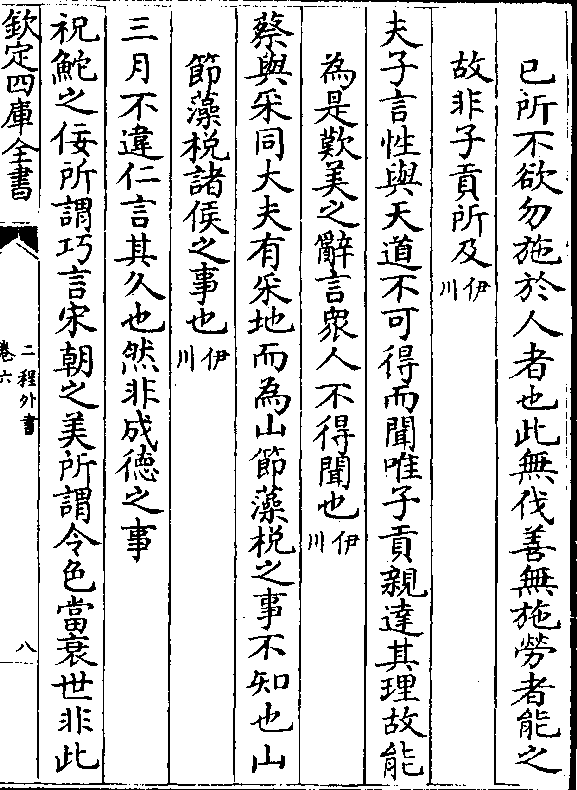 已所不欲勿施於人者也此無伐善無施勞者能之
故非子貢所及伊川
夫子言性與天道不可得而聞唯子貢親達其理故能
為是歎美之辭言衆人不得聞也伊川
蔡與采同大夫有采地而為山節藻梲之事不知也山
節藻梲諸侯之事也伊川
三月不違仁言其久也然非成德之事
祝鮀之佞所謂巧言宋朝之美所謂令色當衰世非此
欽定四庫全書
二程外書
卷六
八